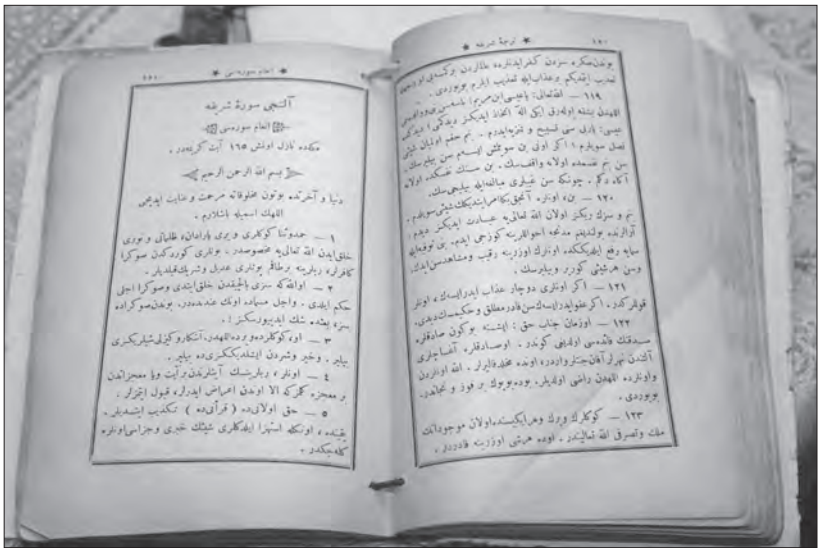 ١٥٠ ★ ترجمهٔ شریفه ★
بوندن صكره سزدن كفر ایدنلرده عالملردن بر كمسه‌یی
تعذیب ایتمدیكم بر عذاب ایله تعذیب ایلرم بویوردی .
١١٩ — الله تعالی: یاعیسی ابن مریم! ناسه سن بی و والده‌می
اللهدن بشقه اوله‌رق ایكی اله اتخاذ ایدیكز دیدكمی؟ دیدكده
عیسی: یارب سنی تسبیح و تنزیه ایدرم . بنم حقم اولمیان شیئی
نصل سویلرم؟ اكر اونی بن سویلمش ایسه‌م سن بیلیرسك.
سن بنم نفسمده اولانه واقفسك. بن سنك نفسكده اولانه
آكاه دكلم . چونكه سن غیبلری مبالغه ایله بیلیجی سك.
١٢٠ — بن، اونلره آنجق بكا امر ایتدیكك شیئی سویلدم .
بنم و سزك ربكز اولان الله تعالی‌یه عبادت ایدیكز دیدم؛
آرالرنده بولندیغم مدتجه احواللرینه كوزجی ایدم. بنی توفی ایله
سمایه رفع ایلدیككده اونلرك اوزرینه رقیب و مشاهد سن ایدك.
وسن هر شیئی كورر و بیلیرسك .
١٢١ — اكر اونلری دوچار عذاب ایدرایسه‌ك، اونلر
قوللركدر. اكر عفو ایدرایسه‌ك سن قادر مطلق و حكیمسك دیدی.
١٢٢ — اوزمان جناب حق : ایشته بو كون صادقلره
صدقك فائده‌سی اولدیغی كوندر . او صادقلره، آغاچلری
آلتندن نهرلر آقان جنتلر واردر، اونده مخلد قالیرلر . الله اونلردن
واونلرده اللهدن راضی اولدیلر. بوده بویوك بر فوز و نجاتدر.
بویوردی .
١٢٣ — كوكلرك ویرك و هر ایكیسنده اولان موجوداتك
ملك و تصرفی الله تعالینكدر . اوده هر شی اوزرینه قادردر .
★ انعام سوره‌سی ★ ١٥١
آلتنجی سورهٔ شریفه
انعام سوره‌سی
مكه‌ده نازل اولمش ١٦٥ آیت كریمه‌در .
بسم الله الرحمن الرحیم
دنیا و آخرتده بوتون مخلوقاته مرحمت و عنایت ایدیجی
اللهك اسمیله باشلارم .
١ — حمدوثنا كوكلری و یری یارادان، ظلماتی و نوری
خلق ایدن الله تعالی‌یه مخصوصدر . بونلری كوردكدن صوكرا
كافرلر، ربلرینه برطاقم بوتلری عدیل و شریك قیلدیلر .
٢ — او الله كه سزی بالچیقدن خلق ایتدی و صوكرا اجلی
حكم ایلدی . واجل مسماده اونك عندنده‌در. بوندن صوكراده
سزه بعثده شك ایدیورسكز ! .
٣ — او، كوكلرده و یرده اللهدر. آشكار و كیزلی شیلریكزی
بیلیر . وخیر وشردن ایشلدیككزی ده بیلیر .
٤ — اونلره، ربلرینك آیتلرندن بر آیت ویا معجزاتدن
بر معجزه كلمز كه الا اوندن اعراض ایدرلر، قبول ایتمزلر .
٥ — حق اولانی‌ده ( قرآنی‌ده ) تكذیب ایتدیلر .
یقنده ، اونكله استهزا ایلدكلری شیئك خبری و جزاسی اونلره
كله‌جكدر .